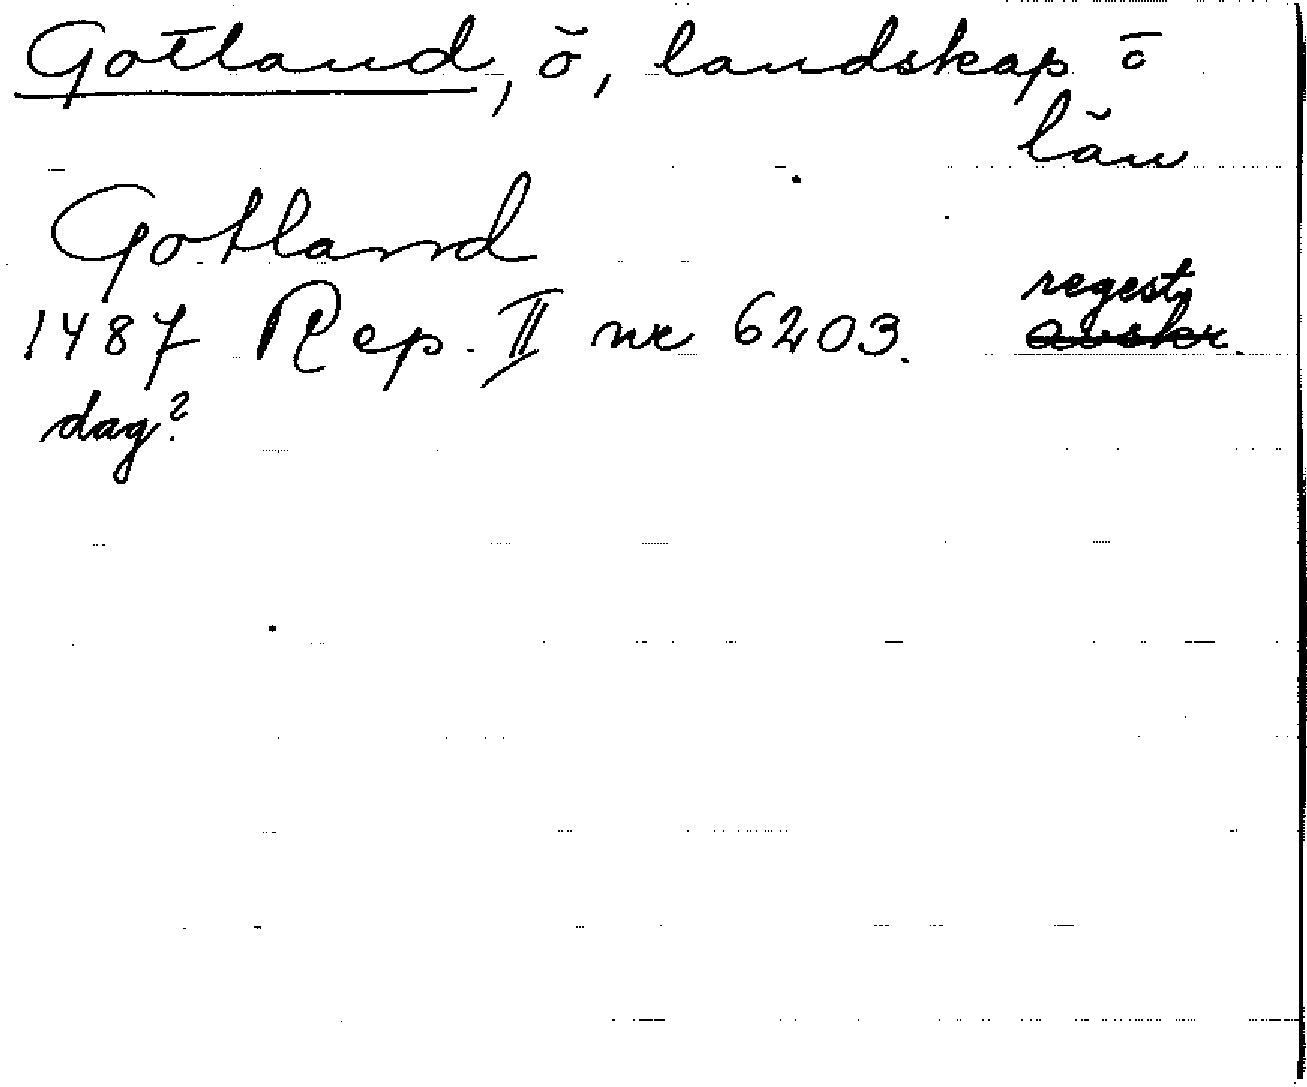 Gotland, ö, landskap o
län
Gotland
regest.
1487 Rep. II nr 6203. avskr.
dag?